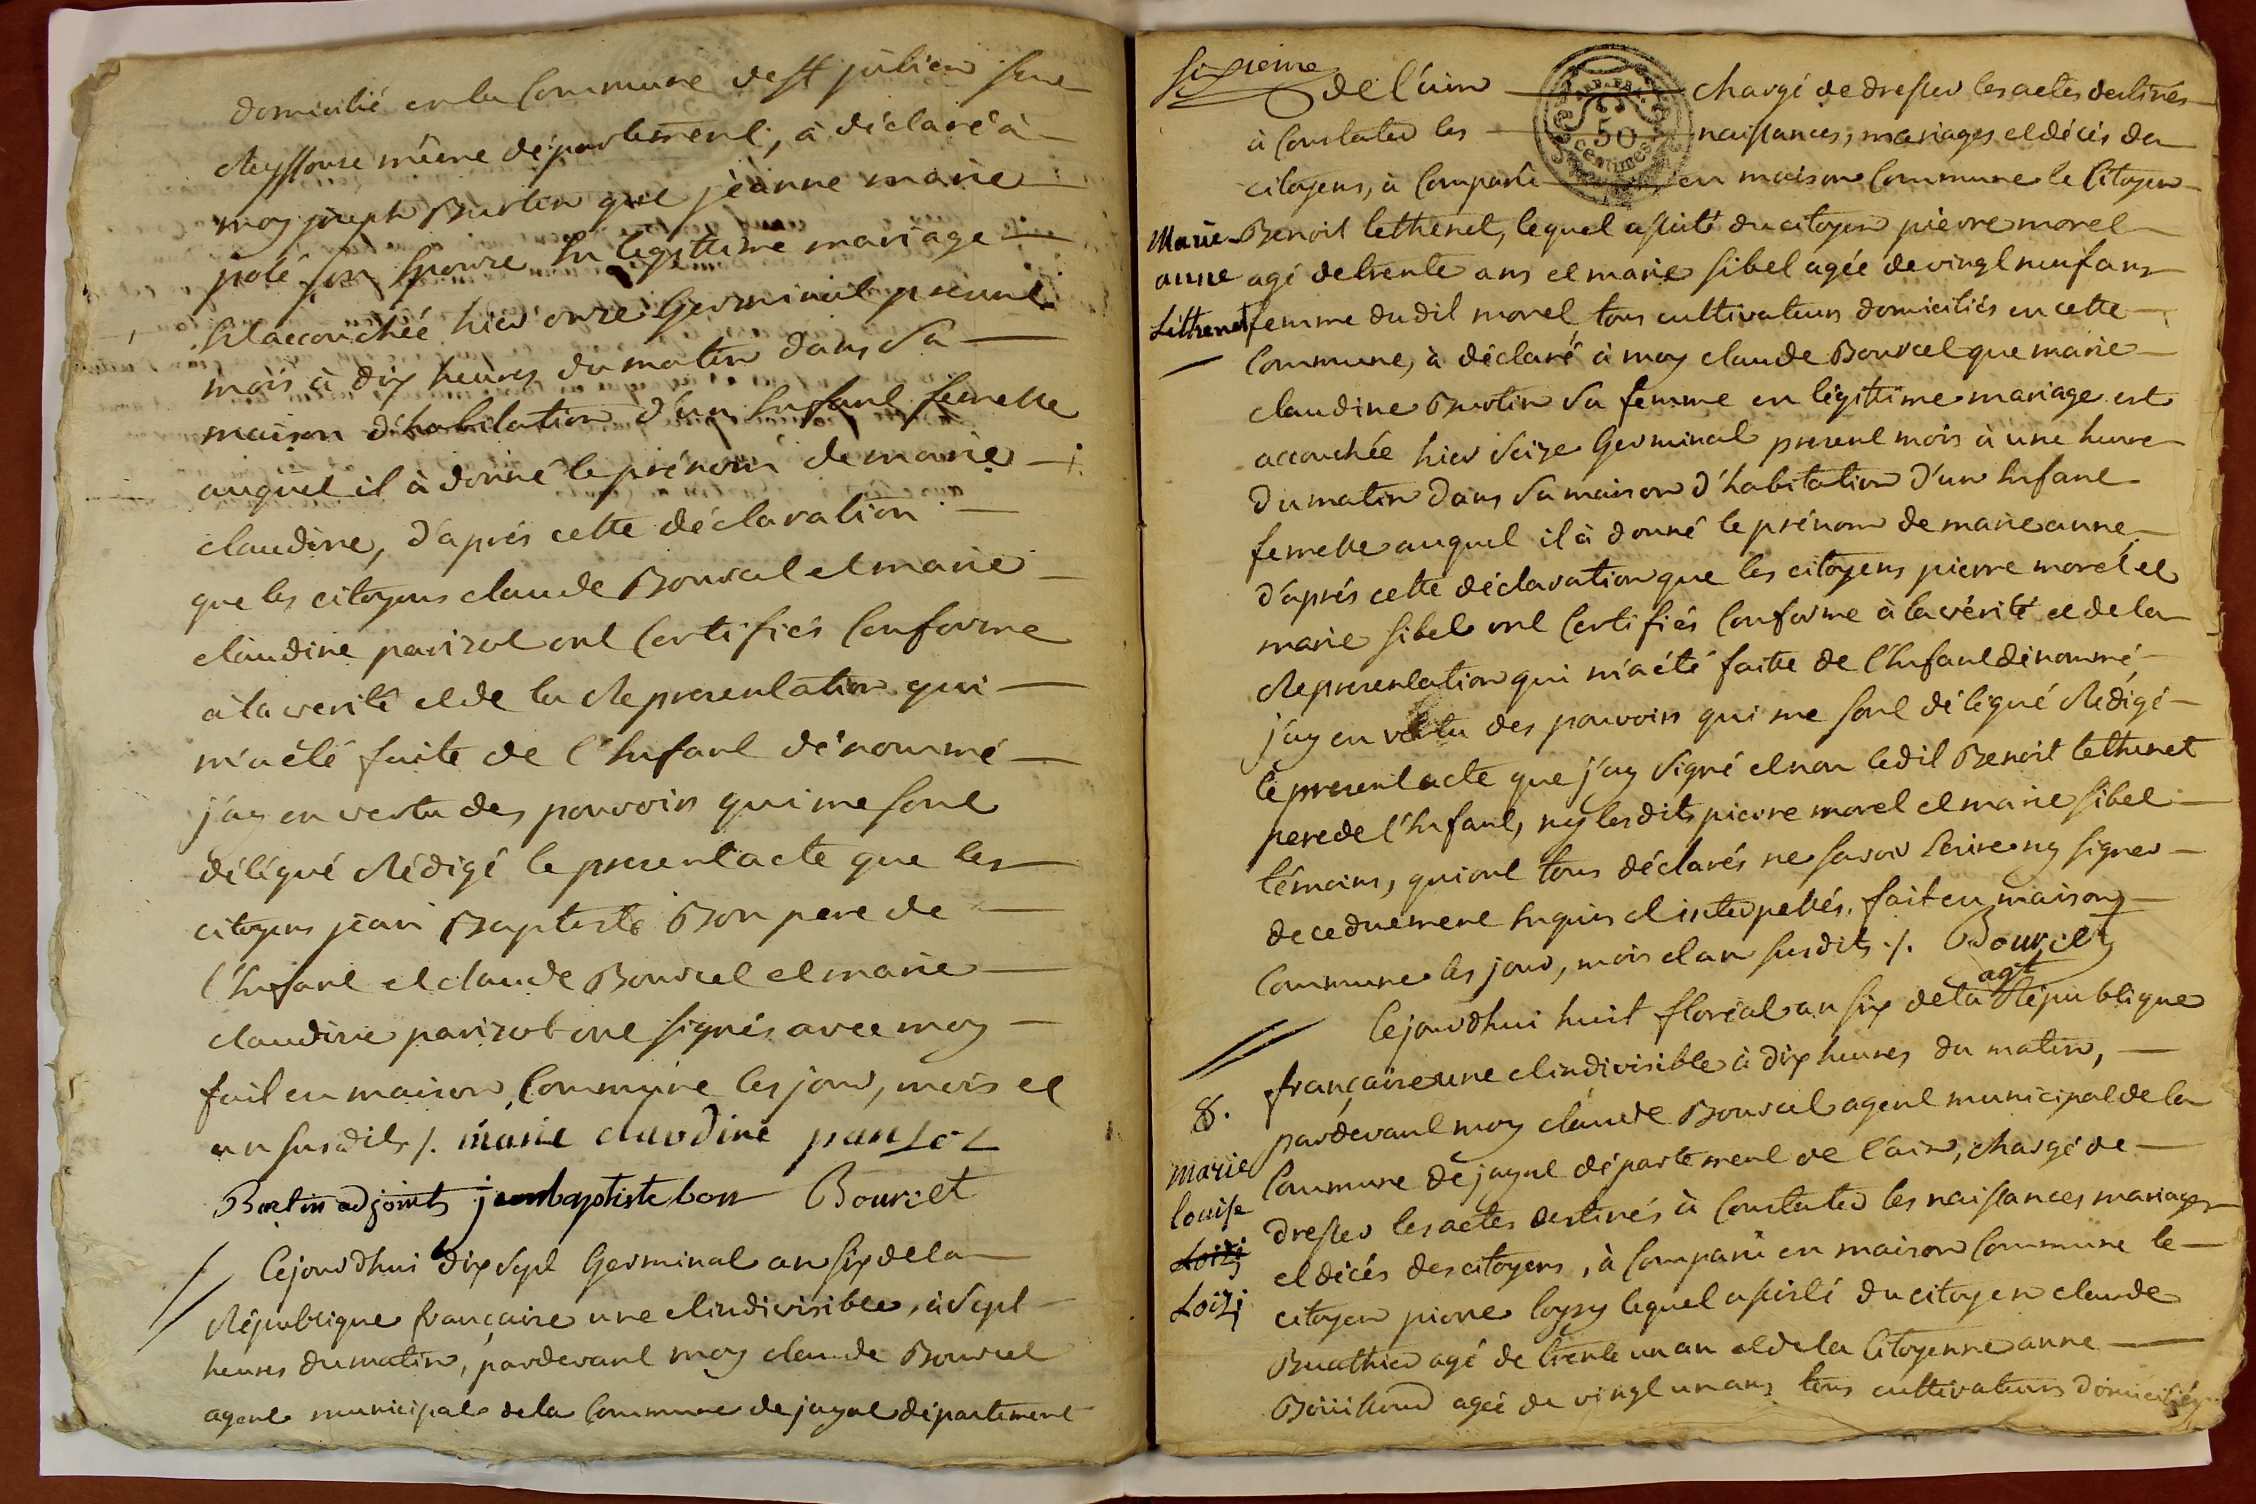 domicilié en la Commune de st julien sur
Reyssouse même département, à déclaré à
moy joseph Burtin que jeanne marie
polé son Epouse En legittime mariage
Est accouchée hier onze Germinal present
mois à dix heures du matin dans sa
maison d'habitation d'un Enfant femelle
auquel il à donné le prénom de marie
claudine, d'aprés cette déclaration
que les citoyens claude Bourcet et marie
claudine parizot ont Certifiés Conforme
à la verité et de la Representation qui
m'a été faite de l'Enfant dénommé
j'ay en vertu des pouvoirs qui me sont
délégué Rédigé le present acte que les
citoyens jean Baptiste Bon pere de
l'Enfant et claude Bourcet et marie
claudine parizot ont signés avec moy
fait en maison Commune les jour, mois et
an susdits ./. marie claudine parizot
Burtin adjoint jean baptiste bon Bourcet
Cejourdhui dix sept Germinal an six de la
République française une et indivisible, à sept
heures du matin, pardevant moy claude Bourcet
agent municipal de la Commune de jayat département
sixieme
de l'ain chargé de dresser les actes destinés
50 centimes
à Constater les naissances, mariages et décés des
citoyens, à Comparû en maison Commune le Citoyen
Marie Benoit lethenet, lequel assisté du citoyen pierre morel
anne agé de trente ans et marie sibel agée de vingt neuf ans
Lethenet femme dudit morel tous cultivateurs domiciliés en cette
Commune, à déclaré à moy claude Bourcet que marie
claudine Burtin sa femme en légittime mariage est
accouchée hier seize Germinal present mois à une heure
du matin dans sa maison d'habitation d'un Enfant
femelle auquel il à donné le prénom de marie anne
d'aprés cette déclaration que les citoyens pierre morel et
marie sibel ont Certifiés Conforme à la vérité et de la
Representation qui m'a été faitte de l'Enfant dénommé
j'ay en vertu des pouvoirs qui me sont délégué Rédigé
le present acte que j'ay signé et non ledit Benoit lethenet
pere de l'Enfant, ny lesdits pierre morel et marie sibel
témoins, qui ont tous déclarés ne savoir Ecrire ny signer
de ce duement Enquis et interpellés, fait en maison
Commune les jour, mois et an susdits ./. Bourcet
agt
Cejourdhui huit floréal an six de la République
française une et indivisible à dix heures du matin,
8. pardevant moy claude Bourcet agent municipal de la
marie Commune de jayat département de l'ain, chargé de
louise dresser les actes destinés à Constater les naissances mariages
Loizi et décés des citoyens, à Comparû en maison Commune le
Loizi citoyen pierre loyzy lequel assisté du citoyen claude
Buathier agé de trente un an et de la Citoyenne anne
agée de vingt un ans tous cultivateurs domiciliés